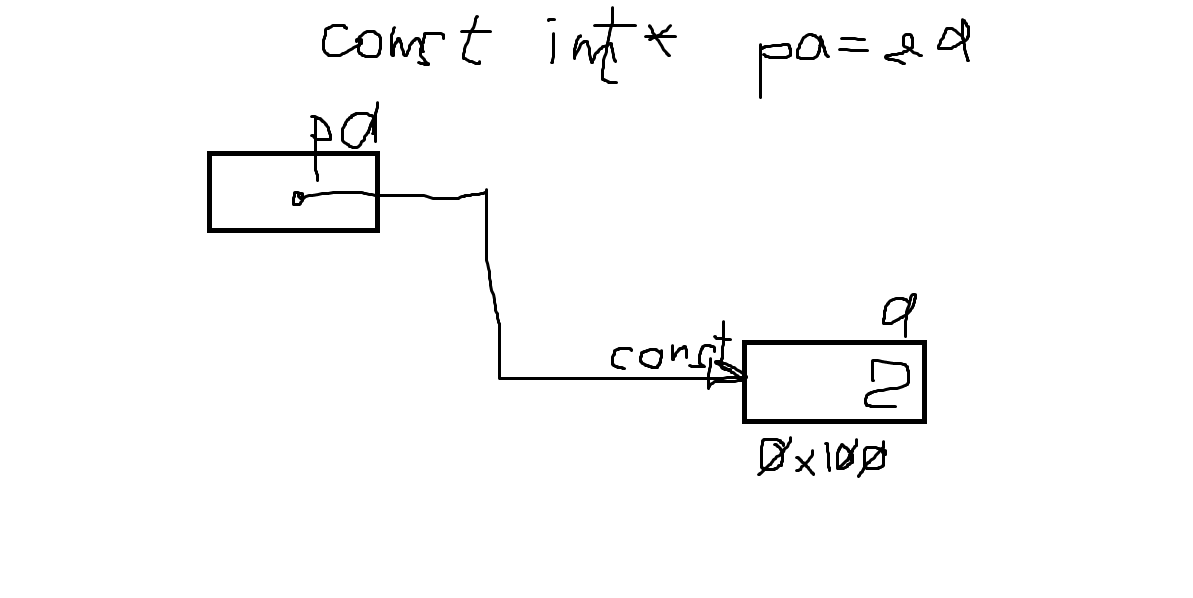 const int* pa = &a
pa
a
const
2
0x100